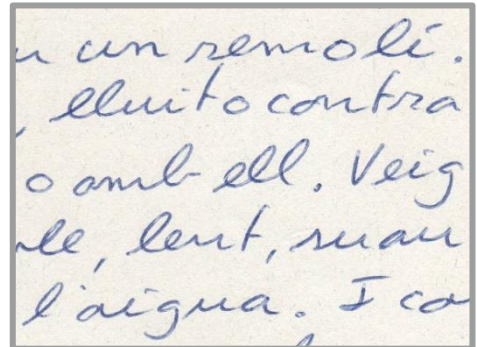 un remolí.
, lluito contra
o amb ell. Veig
le, lent, suau
l'aigua. I co